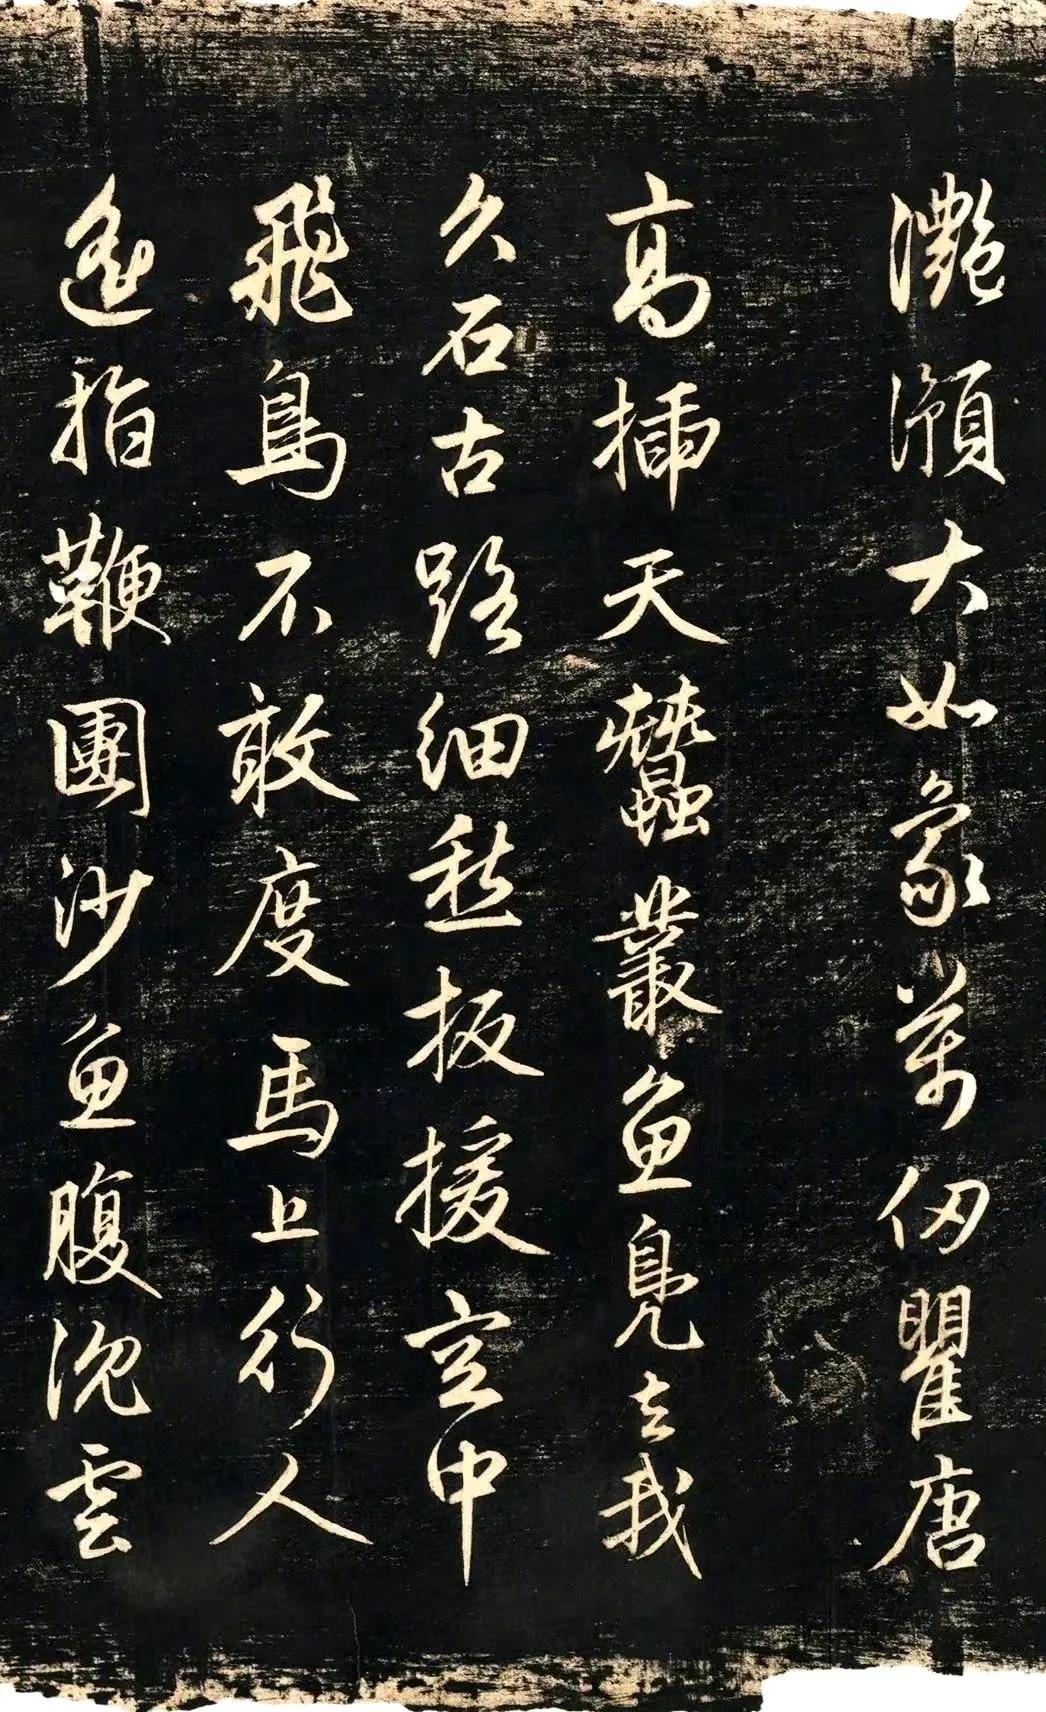 灧澦大如象萬仞瞿唐
高插天蠶叢魚鳧去我
久石古路細愁扳援空中
飛鳥不敢度馬上行人
遙指鞭團沙魚腹沈雲